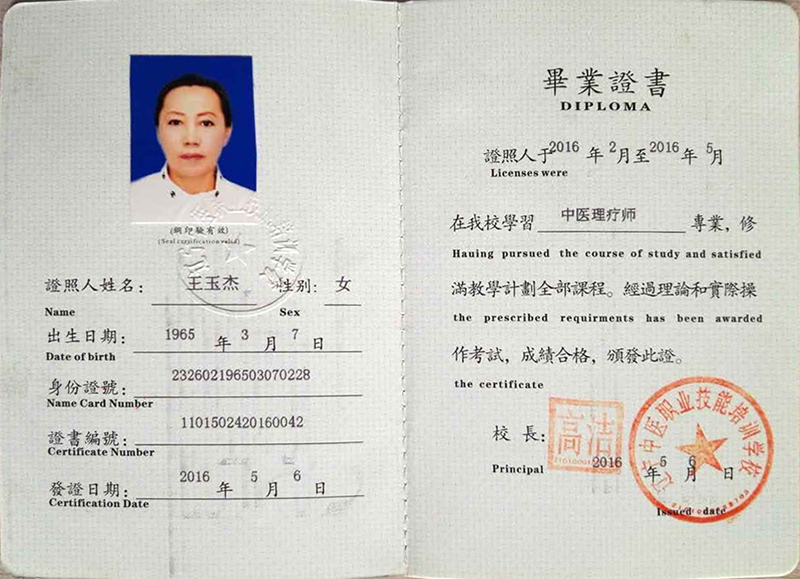 (鋼印驗有效)
(Seal certification valid)
證照人姓名: 王玉杰 性别: 女
Name Sex
出生日期: 1965 年 3 月 7 日
Date of birth
身份證號: 232602196503070228
Name Card Number
證書編號: 1101502420160042
Certificate Number
發證日期: 2016 年 5 月 6 日
Certification Date
畢業證書
DIPLOMA
證照人于2016 年 2月至2016 年 5月
Licenses were
在我校學習 中医理疗师 專業, 修
Hauing pursued the course of study and satisfied
滿教學計劃全部課程。經過理論和實際操
the prescribed requirments has been awarded
作考試, 成績合格, 頒發此證。
the certificate
校長: 高洁
Principal 2016 年 5 月 6 日
Issued date
中医职业技能培训学校